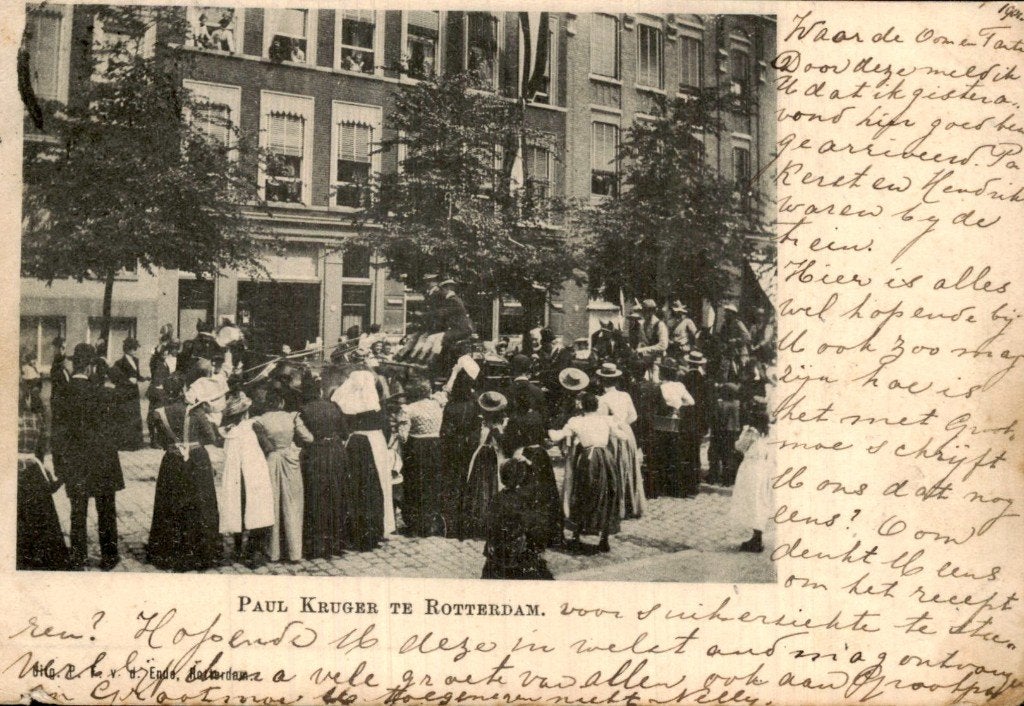 190
Waarde Oom en Tante
Door deze meld ik
U dat ik gistera-
vond hier goed ben
gearriveerd. Pa
Kerst en Hendrik
waren by de
trein.
Hier is alles
wel hopende bij
U ook zoo mag
zijn hoe is
het met Groot-
moe schrijft
U ons dat nog
eens? Oom
denkt U eens
om het recept
PAUL KRUGER TE ROTTERDAM. voor suikerziekte te stu-
ren? Hopende U deze in welstand mag ontvangen
Uitg. v. d. Ende, Rotterdam.
vele groeten van allen ook aan Grootpa
en Grootmoe Uw toegenegen nicht Nelly.